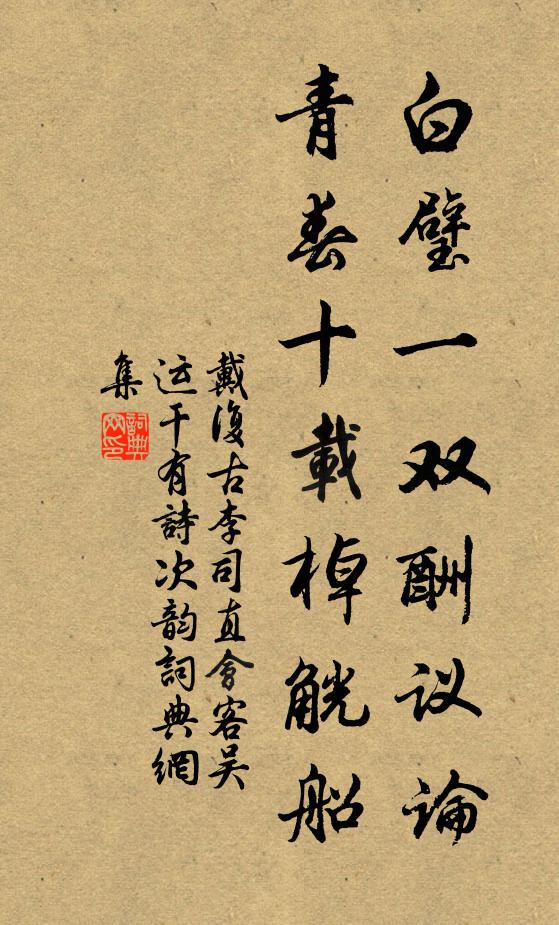 白璧一双酬议論
青春十載棹觥船
戴復古李司直會客吴
运干有詩次韵詞典網
集
詞典網印